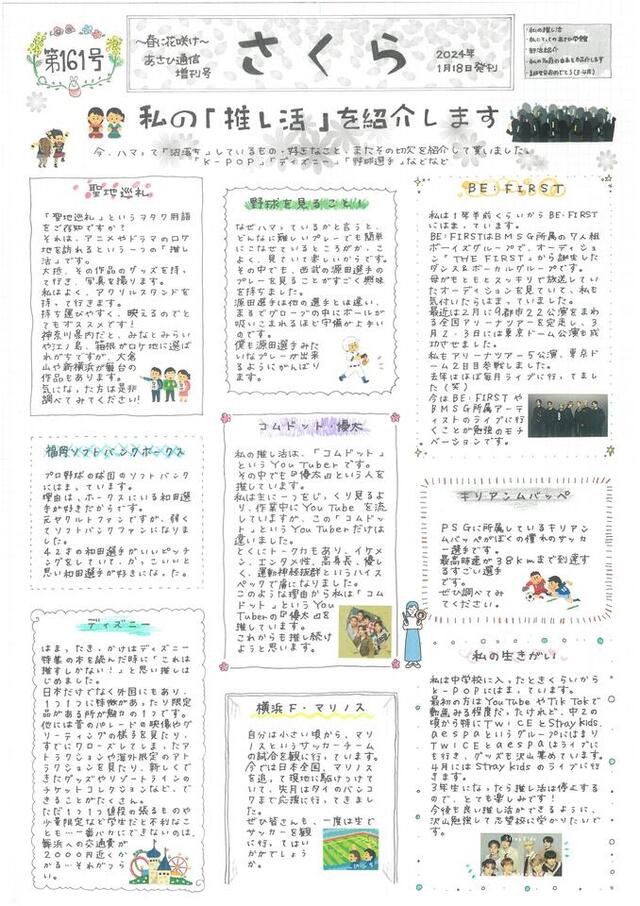 第161号
〜春に花咲け〜
あさひ通信
増刊号
さくら
2024年
1月18日発刊
・私の推し活
・部活紹介
私の「推し活」を紹介します
今、ハマって「沼落ち」しているもの・好きなこと、またその切欠を紹介して貰いました。
「K-POP」「ディズニー」「野球選手」などなど
聖地巡礼
「聖地巡礼」というヲタク用語
をご存知ですか？
それは、アニメやドラマのロケ
地を訪れるという一つの「推し
活」です。
大抵、その作品のグッズを持っ
て行き、写真を撮ります。
私はよく、アクリルスタンドを
持って行きます。
持ち運びやすく、映えるのでと
てもオススメです！
神奈川県内だと、みなとみらい
や江ノ島、箱根がロケ地に選ば
れがちですが、大倉
山や新横浜が舞台の
作品もあります。
気になった方は是非
調べてみてください！
野球を見ること！
なぜハマっているかと言うと、
どんなに難しいプレーでも簡単
にこなせているところがかっこ
よく、見ていて楽しいからです。
その中でも、西武の源田選手の
プレーを見ることがすごく興味
を持ちました。
源田選手は他の選手とは違い、
まるでグローブの中にボールが
吸いこまれるほど守備が上手い
のです。
僕も源田選手みた
いなプレーが出来
るようにがんばり
ます。
BE:FIRST
私は1年半前くらいからBE:FIRST
にはまっています。
BE:FIRSTはBMSG所属の7人組
ボーイズグループで、オーディション
"THE FIRST"から誕生した
ダンス&ボーカルグループです。
母がもともとスッキリで放送してい
たオーディションを見ていて、私も
気付いたらはまっていました。
最近は2月に9都市22公演をまわ
る全国アリーナツアーを完走し、3
月2・3日には東京ドーム公演も成
功させました。
私もアリーナツアー5公演、東京ド
ーム2日目参戦しました。
去年はほぼ毎月ライブに行ってまし
た(笑)
今はBE:FIRSTや
BMSG所属アーテ
ィストのライブに行
くことが勉強のモチ
ベーションです。
福岡ソフトバンクホークス
プロ野球の球団のソフトバンク
にはまっています。
理由は、ホークスにいる和田選
手が好きだからです。
元ヤクルトファンですが、弱く
てソフトバンクファンになりま
した。
42才の和田選手がいいピッチ
ングをしていて、かっこいいと
思い和田選手が好きになった。
コムドット・優太
私の推し活は、「コムドット」
というYouTuberです。
その中でも『優太』という人を
推しています。
私は主に一つをじっくり見るよ
り、作業中にYouTubeを流
していますが、この「コムドッ
ト」というYouTuberだけは
違いました。
とくにトーク力もあり、イケメ
ン、エンタメ性、高身長、優し
く、運動神経抜群というハイス
ペックで虜になりました。
このような理由から私は「コム
ドット」というYou
Tuberの『優太』を
推しています。
これからも推し続け
ようと思います。
キリアンムバッペ
PSGに所属しているキリアン
ムバッペがぼくの憧れのサッカ
ー選手です。
最高時速が38kmまで到達す
るすごい選手
です。
ぜひ調べてみ
てください。
ディズニー
はまったきっかけはディズニー
特集の本を読んだ時に「これは
推すしかない！」と思い推しは
じめました。
日本だけでなく外国にもあり、
1つ1つに特徴があったり限定
品がある所が魅力の1つです。
他には昔のパレードの映像やグ
リーティングの様子を見たり、
すでにクローズしてしまったア
トラクションや海外限定のアト
ラクションを見たり、新しくで
きたグッズやリゾートラインの
チケットコレクションなど、で
きることがたくさん。
ただ1つ1つ値段の張るものや
少量限定など学生だと不利なこ
とも…一番バカにできないのは、
舞浜への交通費が
2000円近くか
かる…それがつら
い。
横浜F・マリノス
自分は小さい頃から、マリ
ノスというサッカーチーム
の試合を観に行っています。
今では日本全国、マリノス
を追って現地に駆けつけて
いて、先月はタイのバンコ
クまで応援に行ってきまし
た。
ぜひ皆さんも、一度は生で
サッカーを観
に行ってはい
かがでしょう
か。
私の生きがい
私は中学校に入ったときくらいから
K-POPにはまっています。
最初の方はYouTubeやTikTokで
動画みる程度だったけれど、中2の
頃から特にTWICEとStray kids、
aespaというグループにはまり
TWICEとaespaはライブに
も行き、グッズも沢山集めています。
4月にはStray kidsのライブに行
きます。
3年生になったら推し活は停止する
ので、とても楽しみです！
今後も良い推し活ができるように、
沢山勉強して志望校に受かりたいで
す。